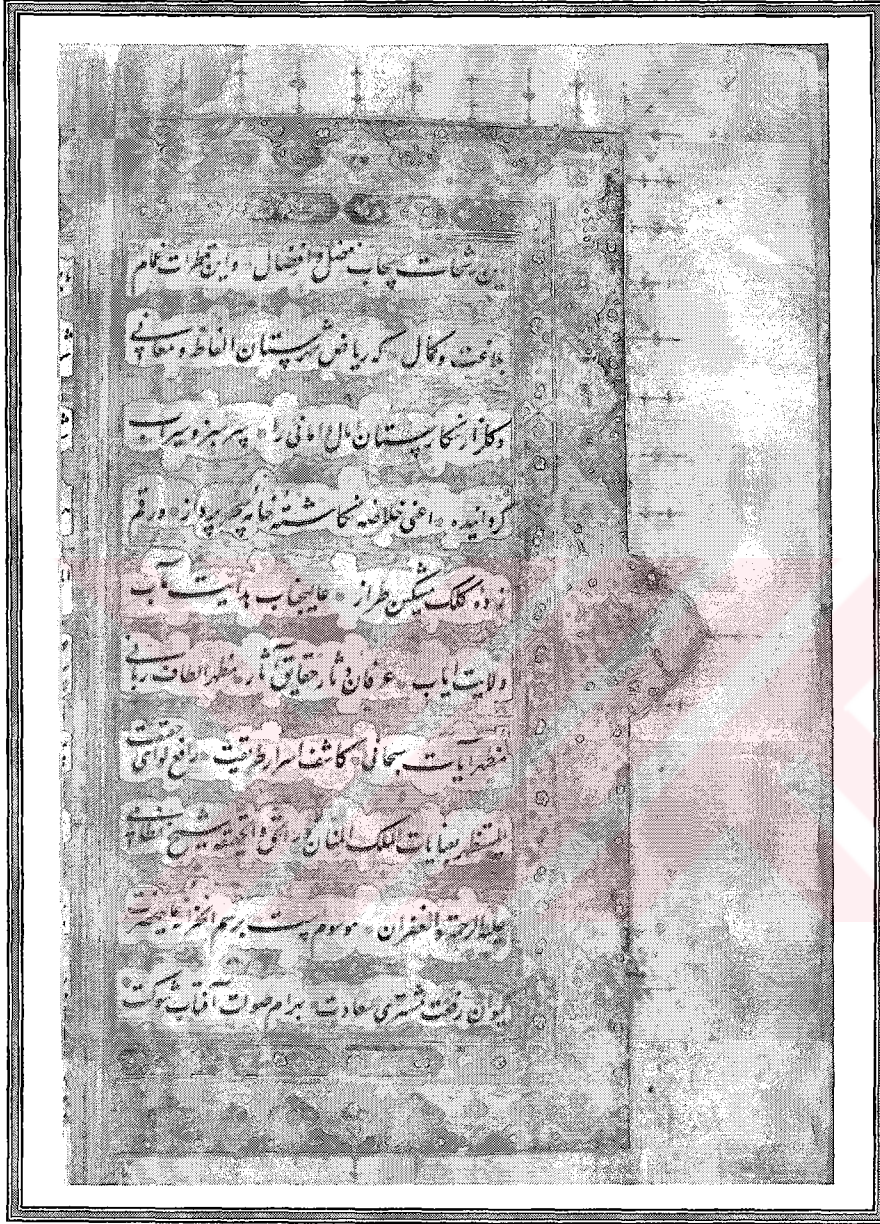 این رشحات سحاب فضل و افضال و این قطرات غمام
بلاغت و کمال که ریاض شهرستان الفاظ و معانی
و گلزار نگارستان مال امانی را سرسبز و سیراب
گردانیده اعنی خلاصه نگاشته خامه پرداز و رقم
زده کلک مشکین طراز عالیجناب هدایت مآب
ولایت ایاب عرفان دثار حقایق آثار مظهر الطاف ربانی
مظهر آیات سبحانی کاشف اسرار طریقت رافع لوای حقیقت
المستظهر بعنایات الملک المنان شیخ نظامی
علیه الرحمة و الغفران موسوم است برسم عالیحضرت
کیوان رفعت مشتری سعادت بهرام صولت آفتاب شوکت